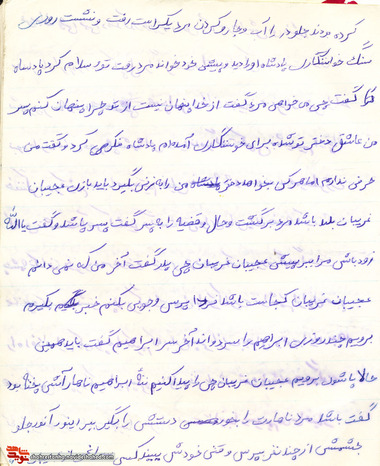 کرده بودند جلو در را آب و جارو کردن مرد یکراست رفت و نشست روی
سنگ خواستگاری پادشاه او را دید و پیش خود خواند مرد رفت تو سلام کرد پادشاه
گفت چی می خواهی مرد گفت از خدا پنهان نیست از تو چرا پنهان کنم پسر
من عاشق دختر تو شده برای خواستگاری آمده ام پادشاه فکری کرد و گفت من
حرفی ندارم اما هر کی بخواهد دختر من را به زنی بگیرد باید بازی عجیبان
غریبان بلد باشد مرد برگشت و حال و قضیه را به پسر گفت پسر پا شد و گفت یاالله
زود باش مرا ببر پیش عجیبان غریبان چی پدر گفت آخر من که نمی دانم
عجیبان غریبان کجاست باشد فردا پرس و جویی بکنم خبر بگیرم
برویم چند روزی ابراهیم را سر دواند آخر سر ابراهیم گفت باید همین
حالا پا شویم برویم عجیبان غریبان چی را پیدا کنیم ننه ابراهیم ناهار آشی پخته بود
گفت باشد مرد ناهارت را بخور دستش را بگیر ببر اینور آنور جلو
چشمش از چند نفر پرس و وقتی خودش ببیند کسی